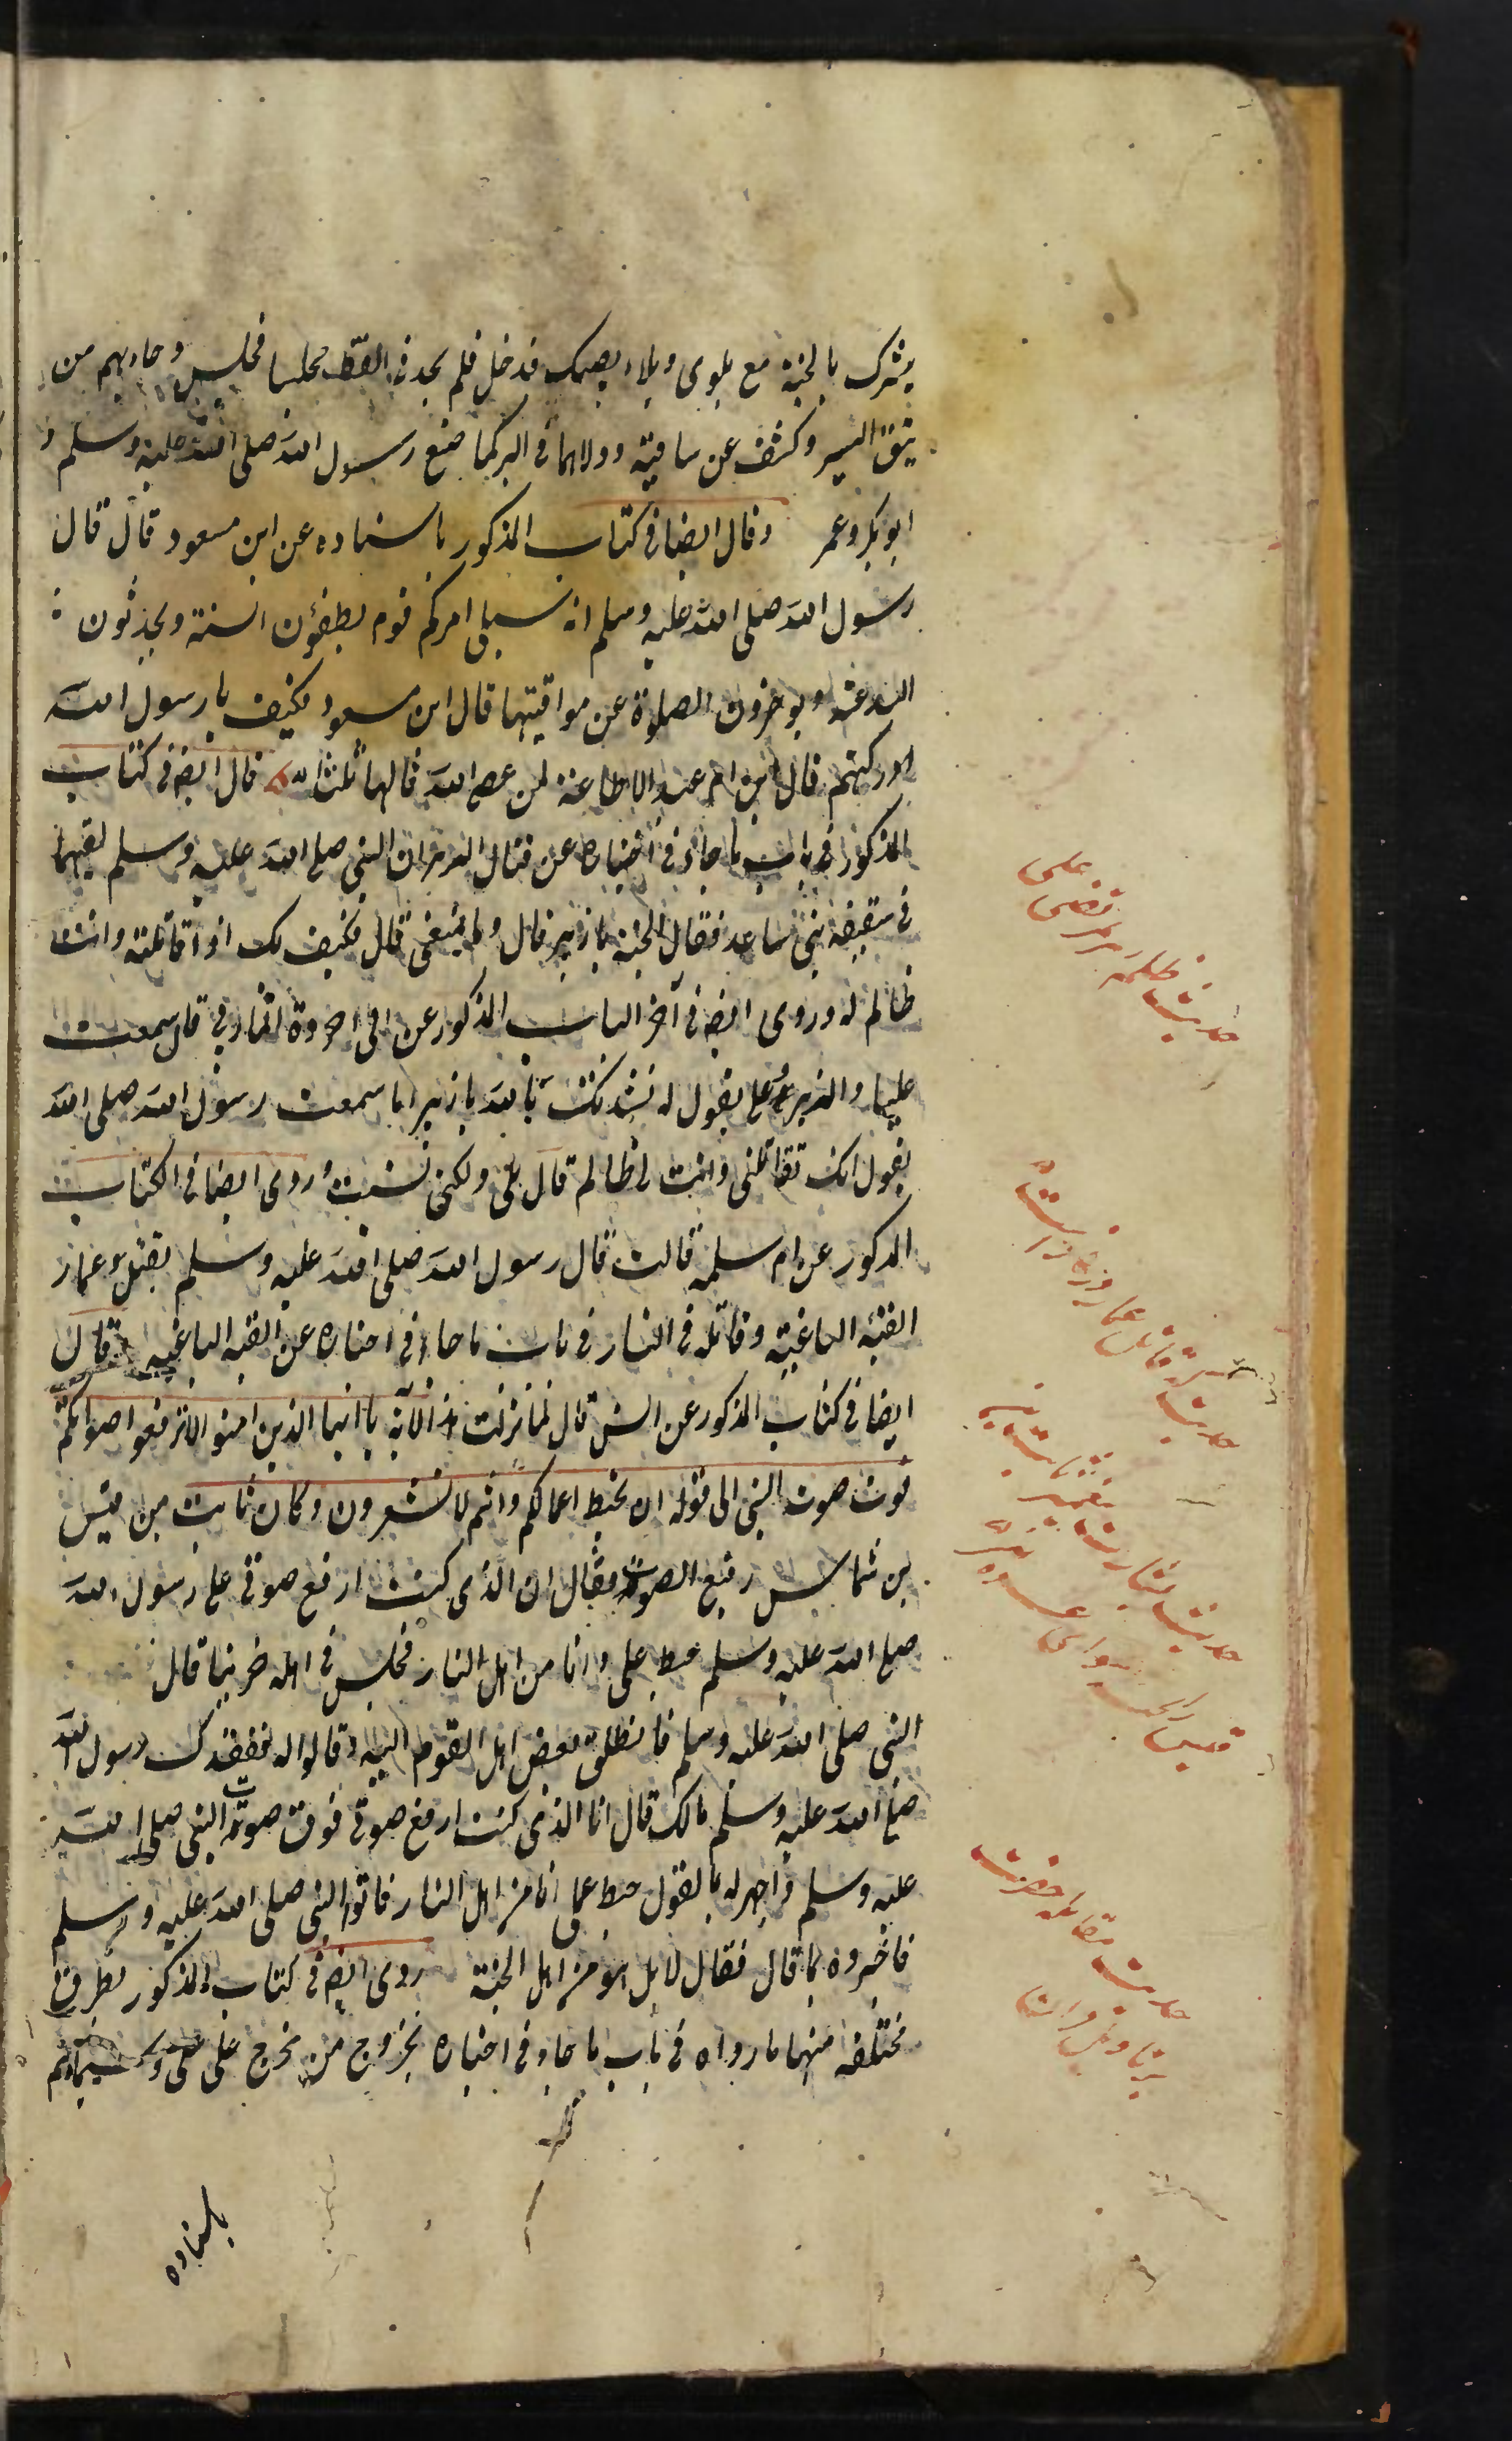 يبشرك بالجنة مع بلوى وبلاء يصيبك فدخل فلم يجد في القف مجلسا فجلس وجاههم من
شق البير وكشف عن ساقيه ودلاهما في البر كما صنع رسول الله صلى الله عليه وسلم و
ابو بكر وعمر وقال ايضا في كتاب المذكور باسناده عن ابن مسعود قال قال
رسول الله صلى الله عليه وسلم انه سيلي امركم قوم يطفئون السنة ويحدثون
البدعة ويوخرون الصلوة عن مواقيتها قال ابن مسعود فكيف يا رسول الله
ادركتهم قال ابن ام عبد لا طاعة لمن عصى الله قالها ثلثا قال ايضا في كتاب
المذكور في باب ما جاء في اخباره عن قتال الزبير ان النبي صلى الله عليه وسلم لقيهما
في سقيفة بني ساعد فقال اتحبه يا زبير قال وما يمنعني قال فكيف بك اذا قاتلته وانت
ظالم له وروى ايضا في آخر الباب المذكور عن ابي جروة المازني قال سمعت
عليا والزبير وعلي يقول له نشدتك بالله يا زبير اما سمعت رسول الله صلى الله
يقول انك تقاتلني وانت لي ظالم قال بلى ولكني نسيت وروى ايضا في الكتاب
المذكور عن ام سلمه قالت قال رسول الله صلى الله عليه وسلم يقتل عمار
الفئة الباغية وقاتله في النار في باب ما جاء في اخباره عن الفئة الباغيه قال
ايضا في كتاب المذكور عن انس قال لما نزلت الآية يا ايها الذين امنوا لا ترفعوا اصواتكم
فوق صوت النبي الى قوله ان تحبط اعمالكم وانتم لا تشعرون وكان ثابت بن قيس
بن شماس رفيع الصوت فقال ان الذي كنت ارفع صوتي على رسول الله
صلى الله عليه وسلم حبط عملي وانا من اهل النار فجلس في اهله حزينا قال
النبي صلى الله عليه وسلم فانطلق بعض اهل القوم اليه وقالوا له تفقدك رسول الله
صلى الله عليه وسلم مالك قال انا الذي كنت ارفع صوتي فوق صوت النبي صلى الله
عليه وسلم واجهر له بالقول حبط عملي انا من اهل النار فاتوا النبي صلى الله عليه وسلم
فاخبروه بما قال فقال لا بل هو من اهل الجنة روى ايضا في كتاب المذكور بطرق
مختلفه منها ما رواه في باب ما جاء في اخباره بخروج من خرج على علي وسيماهم
باسناده
حديث ظلمه زبير مرتضى على
حديث قاتل عمار
حديث بشارت
حديث مقاتله حضرت